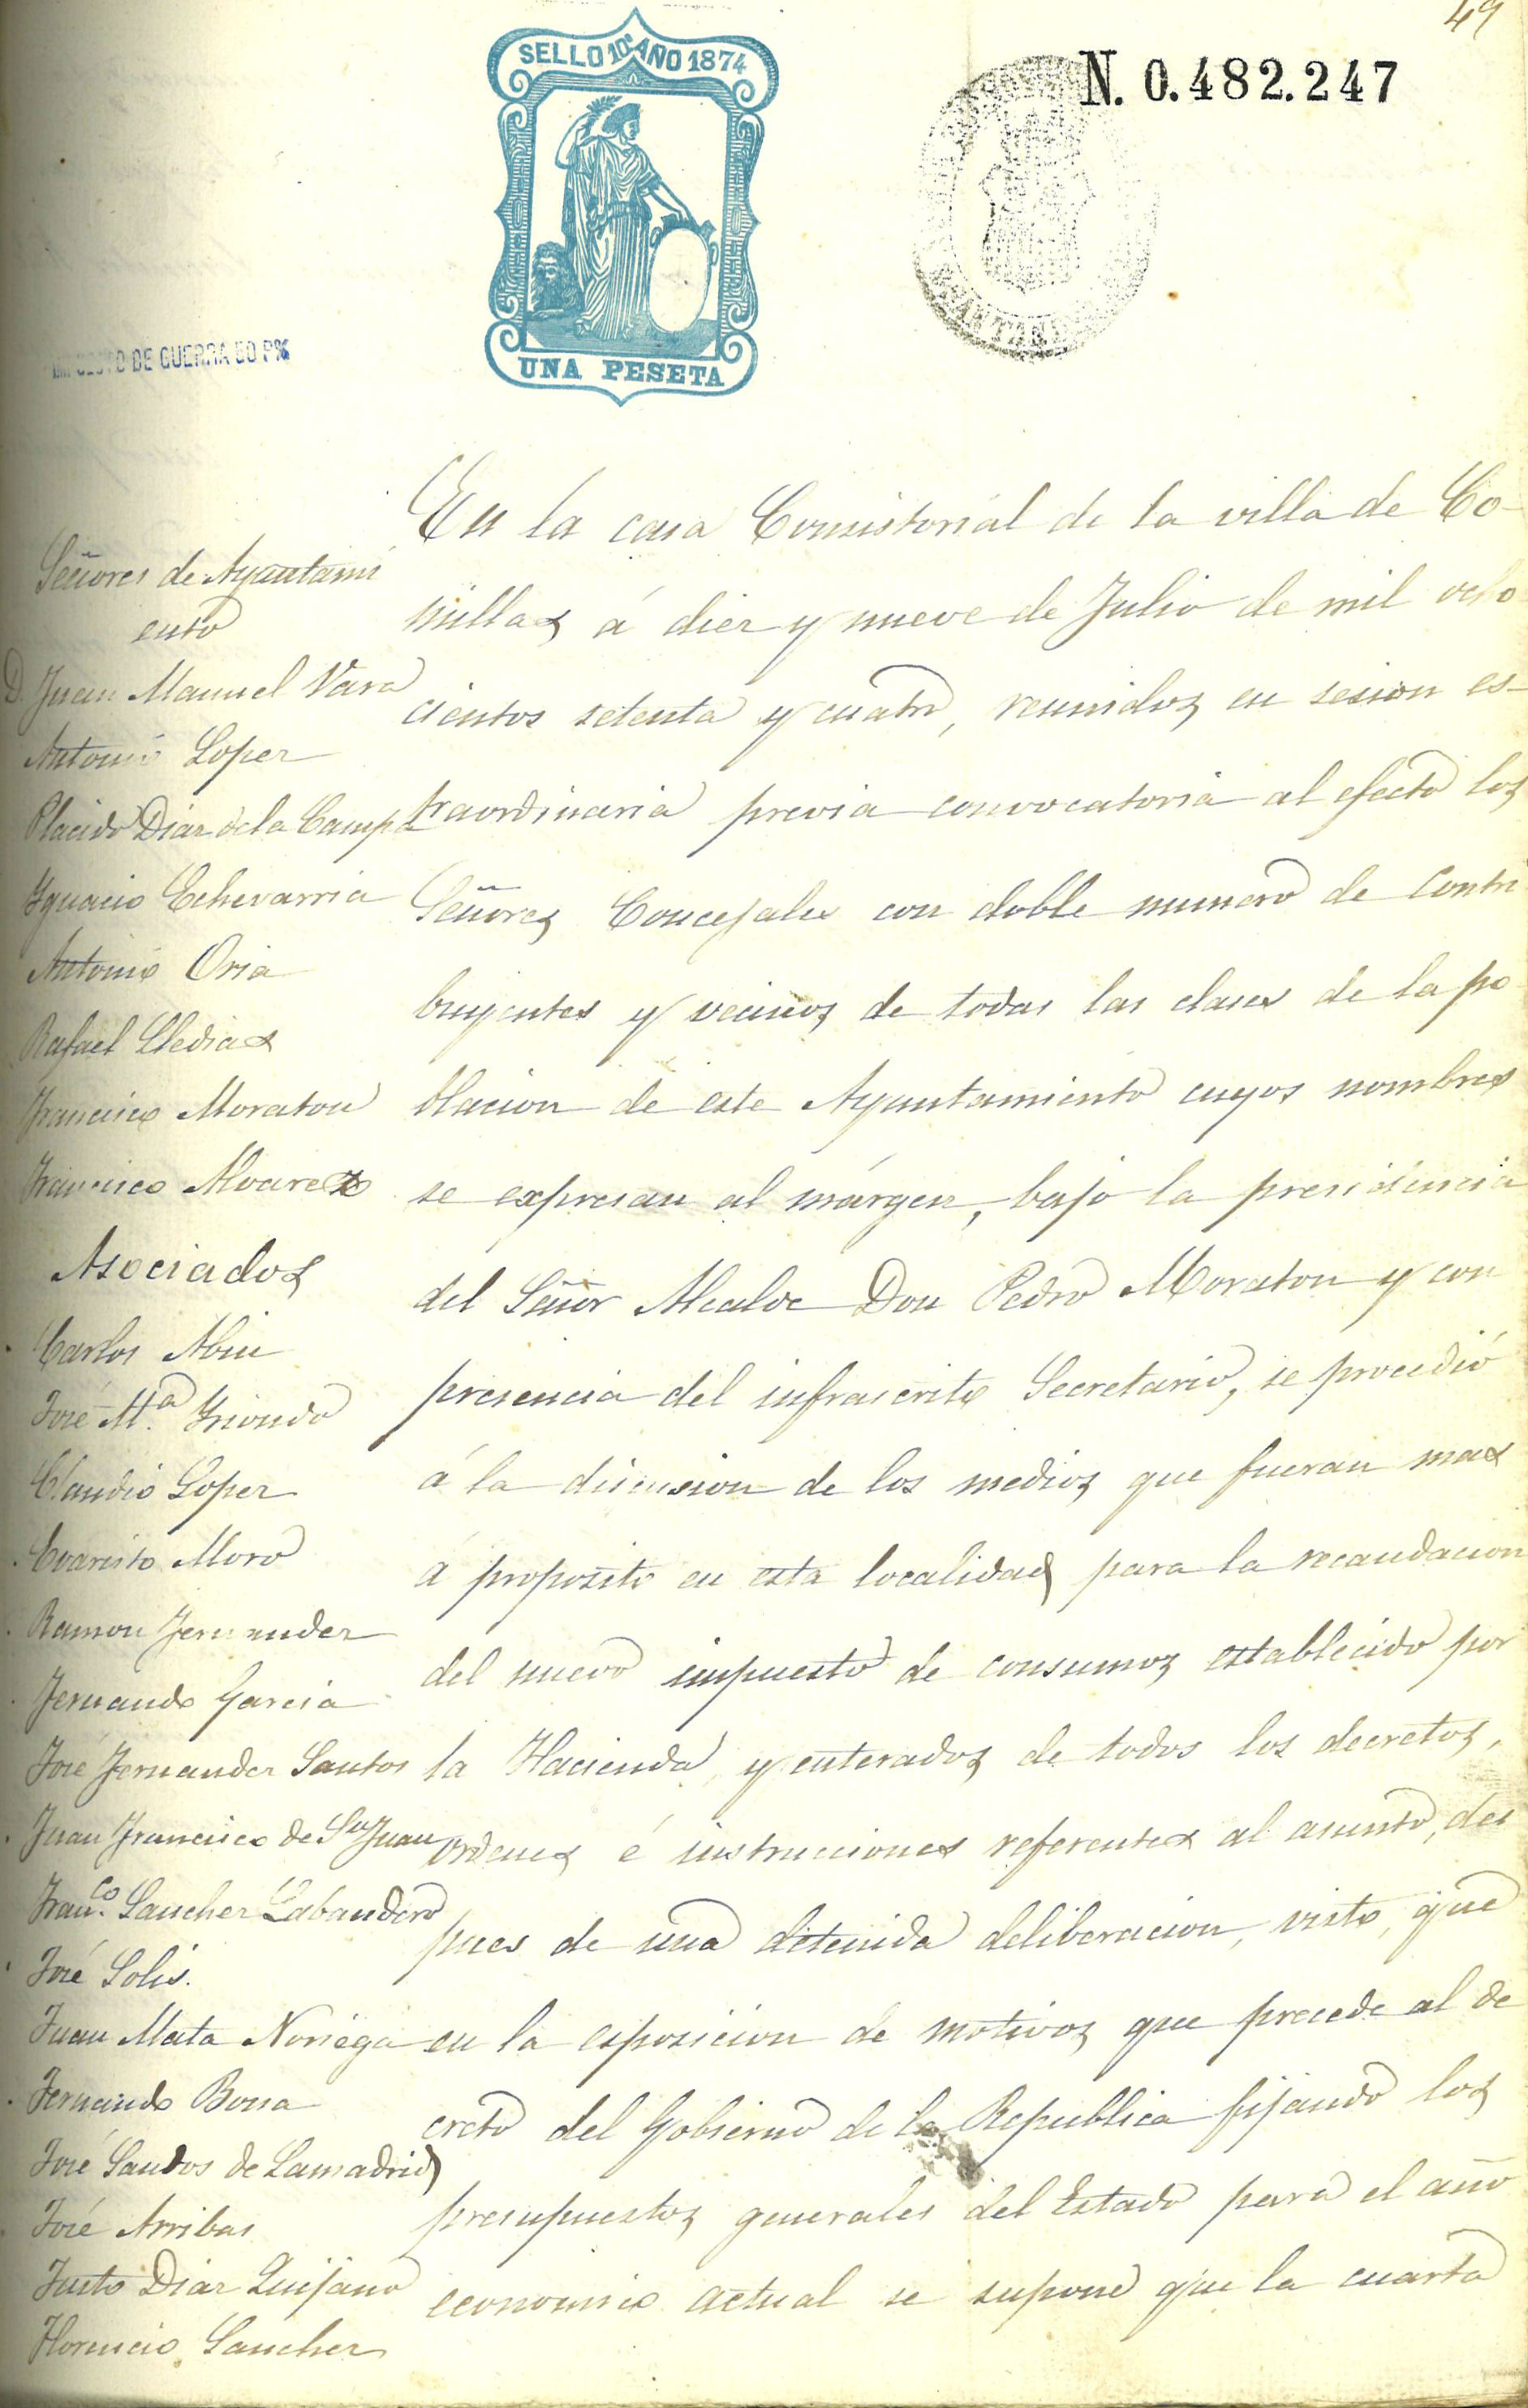 49
SELLO 10º AÑO 1874
UNA PESETA
N. 0.482.247
IMPUESTO DE GUERRA 50 P%
Señores de Ayuntami
ento
D. Juan Manuel Vara
Antonio Lopez
Placido Diaz de la Campa
Ygnacio Echevarria
Antonio Oria
Rafael Lledias
Francisco Moraton
Francisco Alvarez
Asociados
Carlos Abin
José M.ª Yriondo
Claudio Lopez
Evaristo Moro
Ramon Fernandez
Fernando Garcia
José Fernandez Santos
Juan Francisco de Sn Juan
Franco. Sanchez Labandero
José Solis.
Juan Mata Noriega
Fernando Bona
José Santos de Lamadrid
José Arribas
Justo Diaz Quijano
Florencio Sanchez
En la casa Consistorial de la villa de Co-
millas á diez y nueve de Julio de mil ocho
cientos setenta y cuatro, reunidos en sesion es-
traordinaria previa convocatoria al efecto los
Señores Concejales con doble numero de contri
buyentes y vecinos de todas las clases de la po
blacion de este Ayuntamiento cuyos nombres
se expresan al márgen, bajo la presidencia
del Señor Alcalde Don Pedro Moraton y con
presencia del infrascrito Secretario, se procedió
á la discusion de los medios que fueran mas
á proposito en esta localidad para la recaudacion
del nuevo impuesto de consumos establecido por
la Hacienda, y enterados de todos los decretos,
ordenes é instrucciones referentes al asunto, des
pues de una detenida deliberacion, visto, que
en la esposicion de motivos que precede al de
creto del Gobierno de la Republica fijando los
presupuestos generales del Estado para el año
economico actual se supone que la cuarta